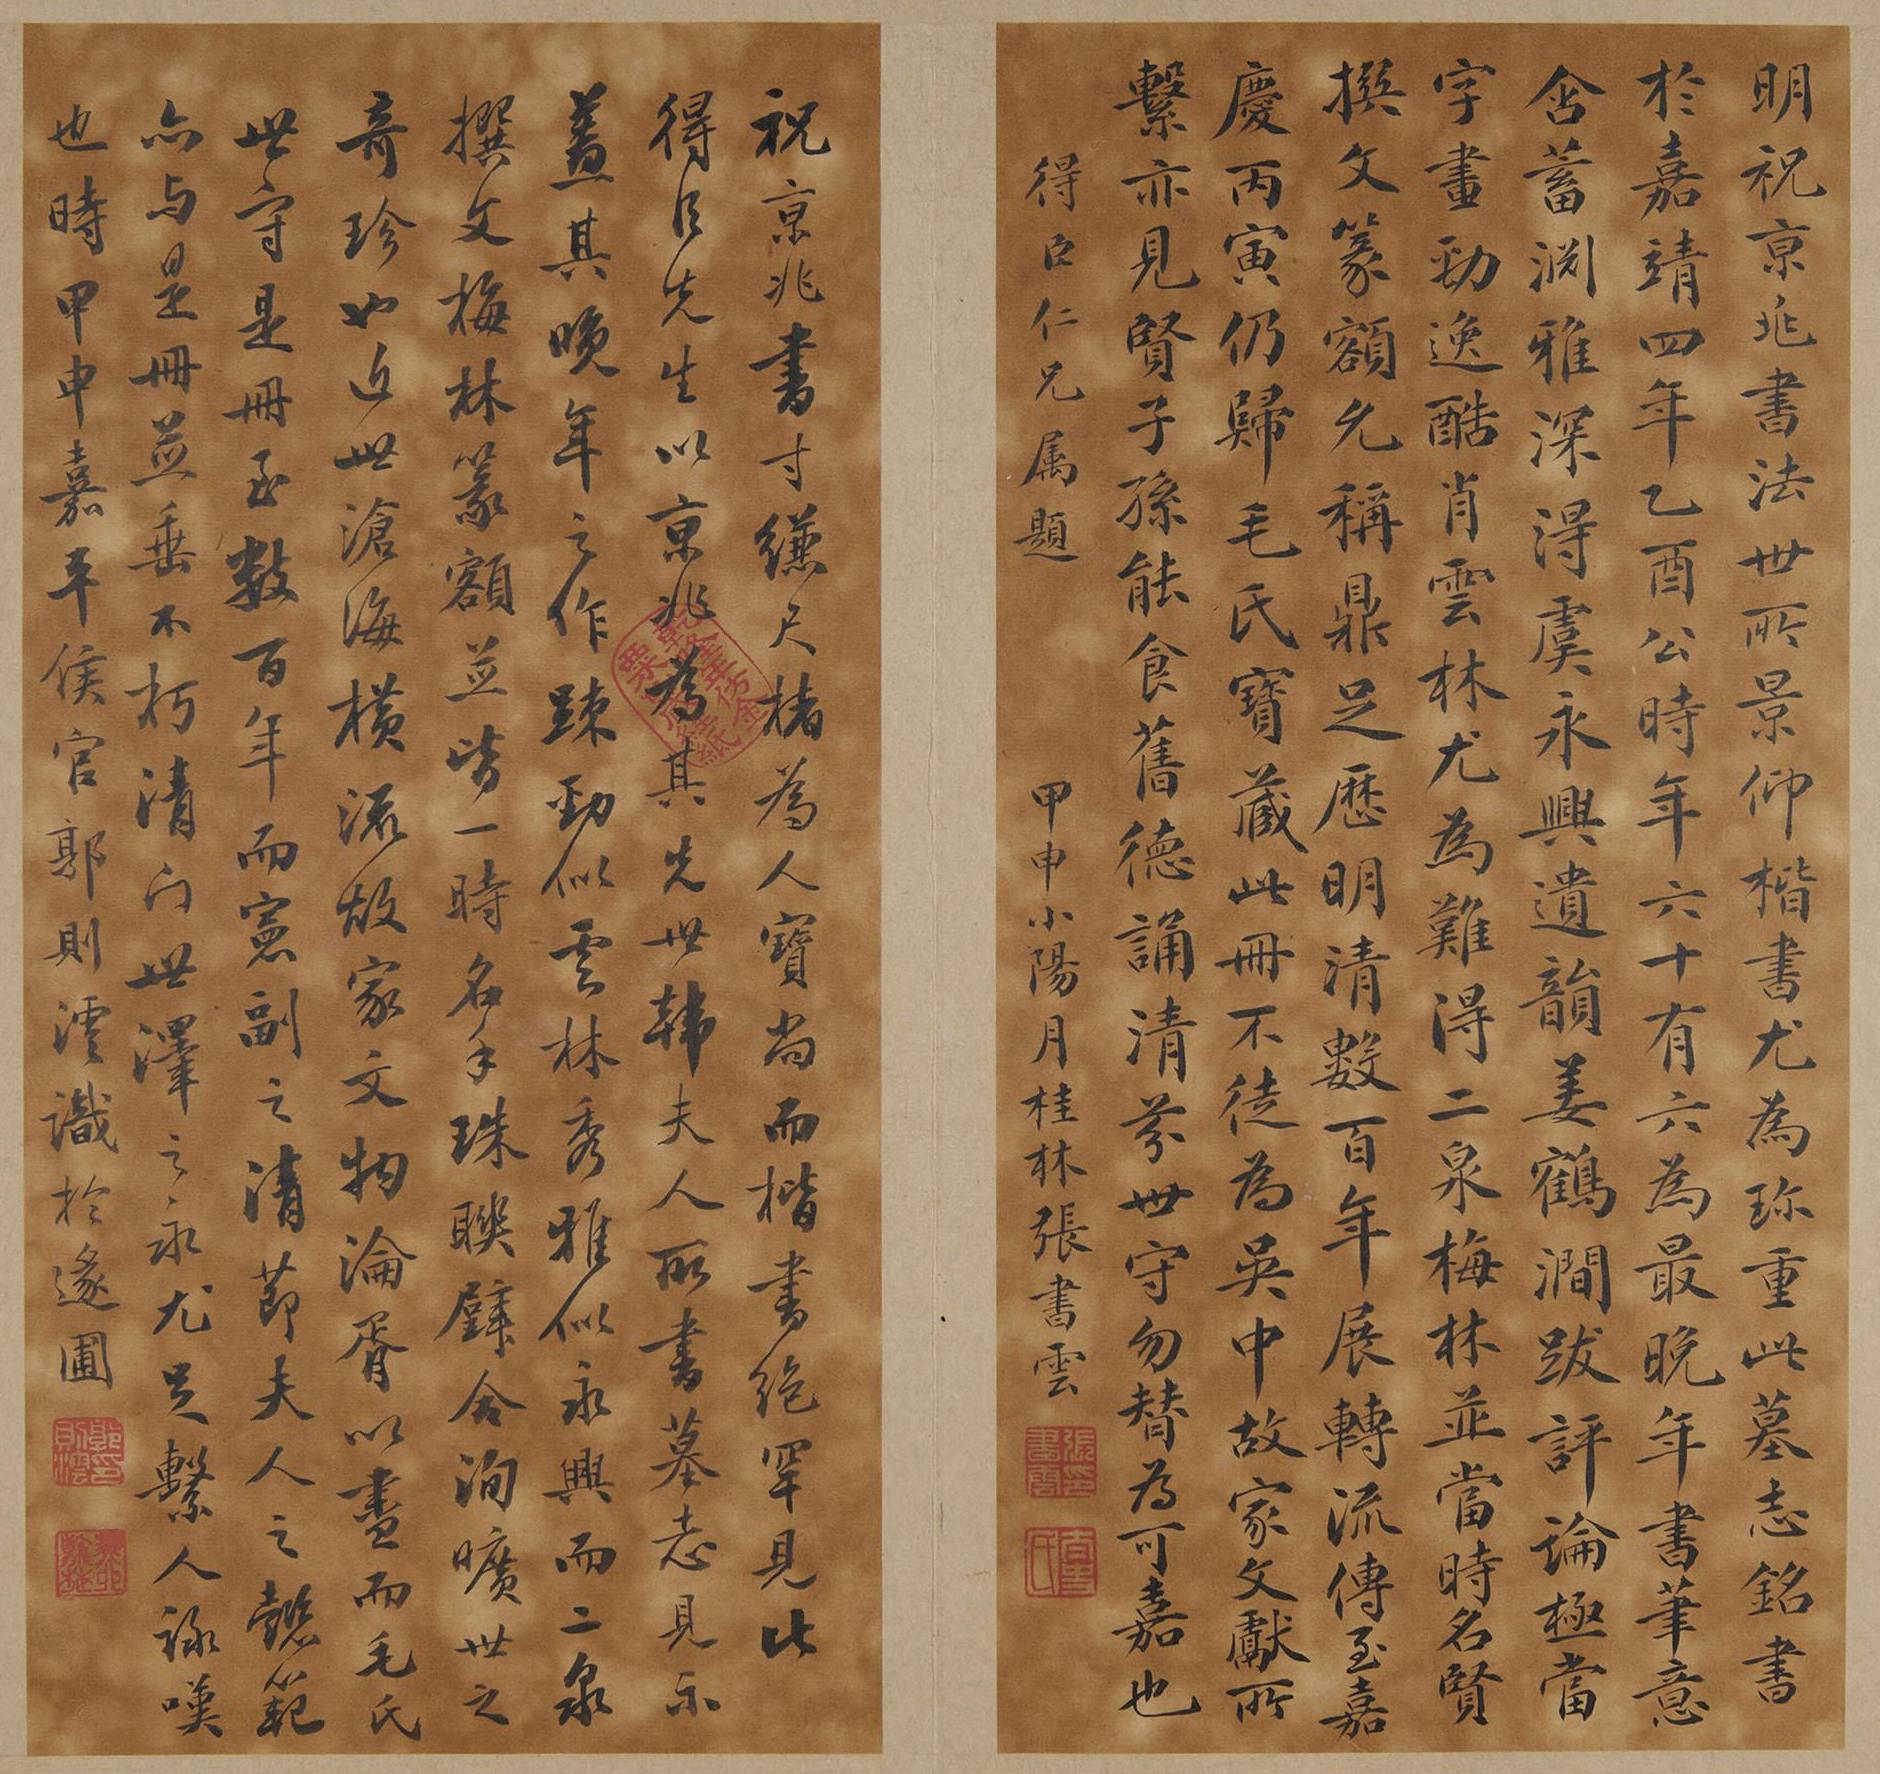 明祝京兆書法世所景仰楷書尤為珎重此墓志銘書
於嘉靖四年乙酉公時年六十有六為最晚年書筆意
含蓄渊雅深得虞永興遺韻姜鶴澗跋評論極當
字畫勁逸酷肖雲林尤為難得二泉梅林並當時名賢
撰文篆額允稱鼎足歷明清數百年展轉流傳至嘉
慶丙寅仍歸毛氏寶藏此冊不徒為吳中故家文獻所
繫亦見賢子孫能食舊德誦清芬世守勿替為可嘉也
得臣仁兄属題
甲申小陽月桂林張書雲
張書雲印
祝京兆書寸縑尺楮為人寶尚而楷書绝罕見此
得臣先生以京兆為其先世韩夫人所書墓志見示
蓋其晚年之作踈勁似雲林秀雅似永興而二泉
撰文梅林篆額並皆一時名手珠聯璧合洵曠世之
奇珍也近世滄海横流故家文物淪胥以盡而毛氏
世守是冊至數百年而寋副之清節夫人之懿範
亦与是冊並垂不朽清門世澤之永尤足繫人詠嘆
也時甲申嘉平侯官郭則澐識於蘧圃
乾隆年仿金粟山藏經紙
郭則澐印